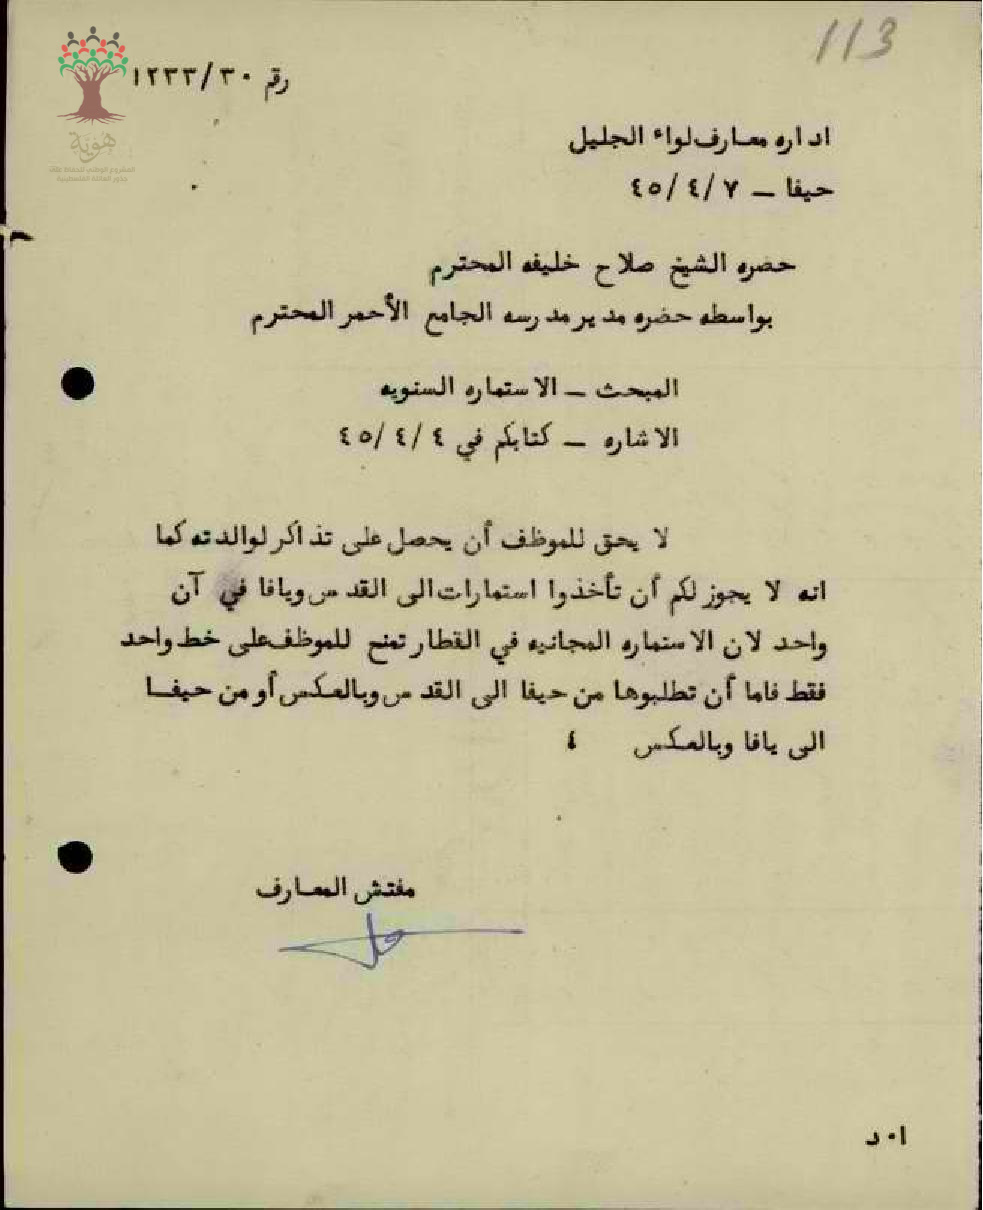 113
رقم ١٢٣٣/٣٠
هوية
اداره معارف لواء الجليل
حيفا – ٤٥/٤/٧
حضره الشيخ صلاح خليفه المحترم
بواسطه حضره مدير مدرسه الجامع الأحمر المحترم
المبحث – الاستماره السنويه
الاشاره – كتابكم في ٤٥/٤/٤
لا يحق للموظف أن يحصل على تذاكر لوالدته كما
انه لا يجوز لكم أن تأخذوا استمارات الى القدس ويافا في آن
واحد لان الاستماره المجانيه في القطار تمنح للموظف على خط واحد
فقط فاما أن تطلبوها من حيفا الى القدس وبالعكس أو من حيفــا
الى يافا وبالعكس ٤
مفتش المعارف
ا٠د